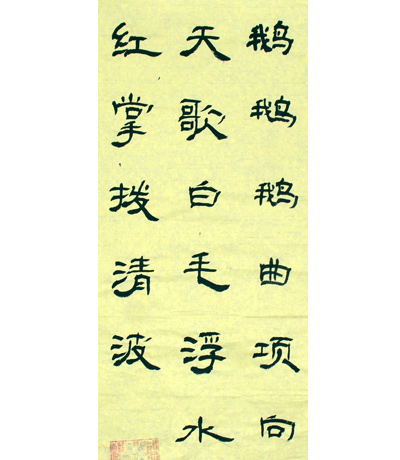 鹅鹅鹅曲项向
天歌白毛浮水
红掌拨清波